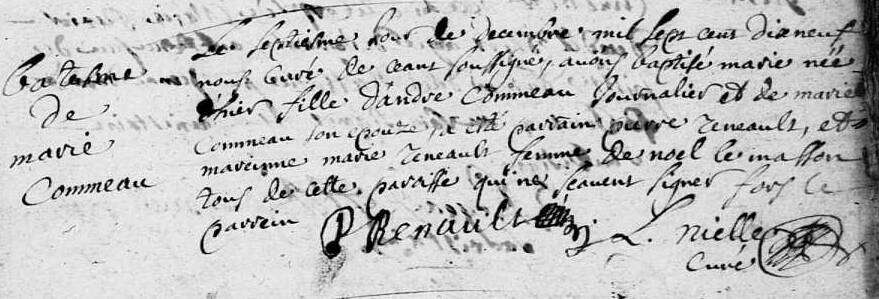 batesme
de
marie
Commeau
Le septiesme jour de decembre mil sept cent dixneuf
nous Curé de ceant soussigné, avons baptisé marie née
d'hier fille d'andre Commeau Journalier et de marie
Commeau son epouze, a eté parrain pierre reneault, et
mareinne marie reneault femme de noel le masson
tous de cette paroisse qui ne sçavent signer fors le
parrein
P Renault
L. nielle
Curé